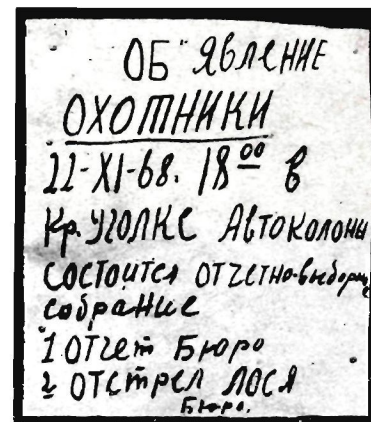 ОБ"ЯВЛЕНИЕ
ОХОТНИКИ
22-XI-68. 18 00 в
Кр. УГОЛКЕ АВТОКОЛОНЫ
СОСТОИТСЯ ОТЧЕТНО-выборн
собрание
1 ОТЧЕТ БЮРО
2 ОТСТРЕЛ ЛОСЯ
Бюро.